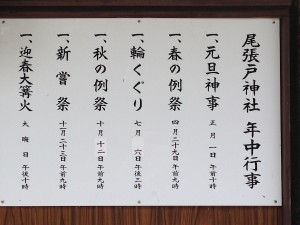 尾張戸神社 年中行事
一、元旦神事 正月一日 午前十時
一、春の例祭 四月二十九日 午前九時
一、輪くぐり 七月六日 午後三時
一、秋の例祭 十月十二日 午前九時
一、新嘗祭 十一月二十三日 午前九時
一、迎春大篝火 大晦日 午後十時